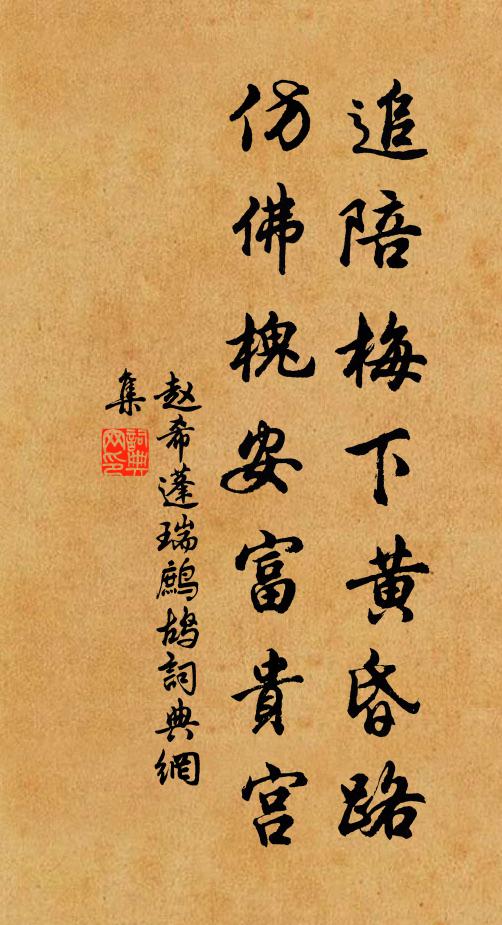 追陪梅下黄昏路
仿佛槐安富貴宫
赵希蓬瑞鹧鸪詞典網
集
詞典
网印